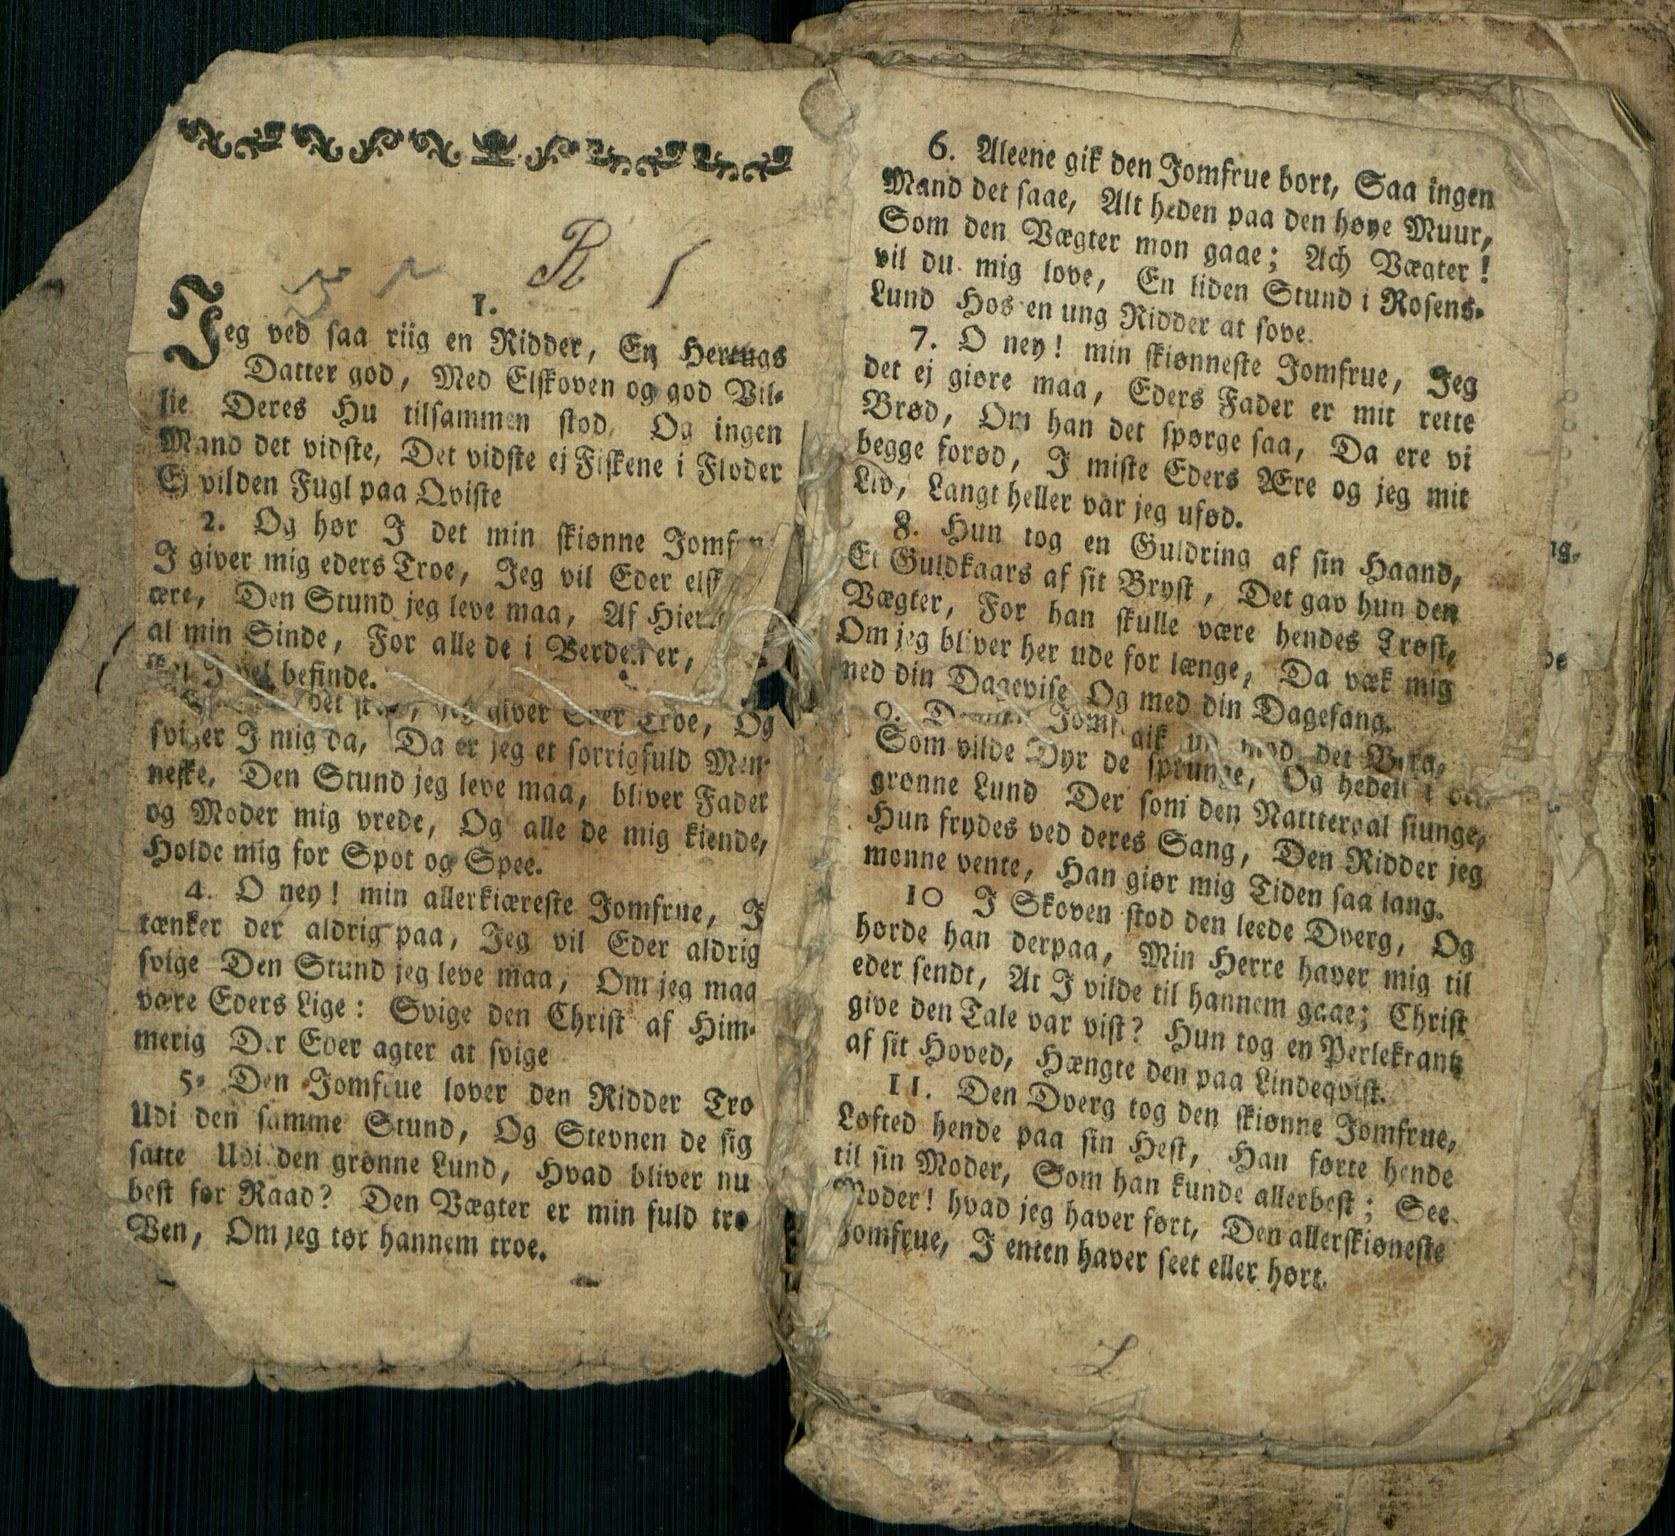 R
1.
Jeg ved saa riig en Ridder, En Hertugs
Datter god, Med Elskoven og god Vil-
lie Deres Hu tilsammen stod, Og ingen
Mand det vidste, Det vidste ej Fiskene i Floder
Ej vilden Fugl paa Qviste
2. Og hør I det min skiønne
I giver mig eders Troe, Jeg vil Eder
ære, Den Stund jeg leve maa, Af
al min Sinde, For alle de i
befinde.
det giver Eder Troe, Og
sviger I mig da, Da er jeg et sorrigfuld Men-
neske, Den Stund jeg leve maa, bliver Fader
og Moder mig vrede, Og alle de mig kiende,
Holde mig for Spot og Spee.
4. O ney! min allerkiæreste Jomfrue, I
tænker der aldrig paa, Jeg vil Eder aldrig
svige Den Stund jeg leve maa, Om jeg maa
være Eders Lige: Svige den Christ af Him-
merig Der Eder agter at svige
5. Den Jomfrue lover den Ridder Tro
Udi den samme Stund, Og Stevnen de sig
satte Udi den grønne Lund, Hvad bliver nu
best for Raad? Den Vægter er min fuld tro
Ven, Om jeg tør hannem troe.
6. Aleene gik den Jomfrue bort, Saa ingen
Mand det saae, Alt heden paa den høye Muur,
Som den Vægter mon gaae; Ach Vægter!
vil du mig love, En liden Stund i Rosens-
Lund Hos en ung Ridder at sove.
7. O ney! min skiønneste Jomfrue, Jeg
det ej giøre maa, Eders Fader er mit rette
Brød, Om han det spørge saa, Da ere vi
begge forød, I miste Eders Ære og jeg mit
Liv, Langt heller var jeg ufød.
8. Hun tog en Guldring af sin Haand,
Et Guldkaars af sit Bryst, Det gav hun den
Vægter, For han skulle være hendes Trøst,
Om jeg bliver her ude for længe, Da væk mig
med din Dagevise Og med din Dagesang.
9. gik det
Som vilde Dyr de sprunge, Og heden i
grønne Lund Der som den Natttergal siunge,
Hun frydes ved deres Sang, Den Ridder jeg
monne vente, Han giør mig Tiden saa lang.
10 I Skoven stod den leede Dverg, Og
hørde han derpaa, Min Herre haver mig til
eder sendt, At I vilde til hannem gaae; Christ
give den Tale var vist? Hun tog en Perlekrantz
af sit Hoved, Hængte den paa Lindeqvist.
11. Den Dverg tog den skiønne Jomfrue,
Løfted hende paa sin Hest, Han førte hende
til sin Moder, Som han kunde allerbest; See
Moder! hvad jeg haver ført, Den allerskiøneste
Jomfrue, I enten haver seet eller hørt.